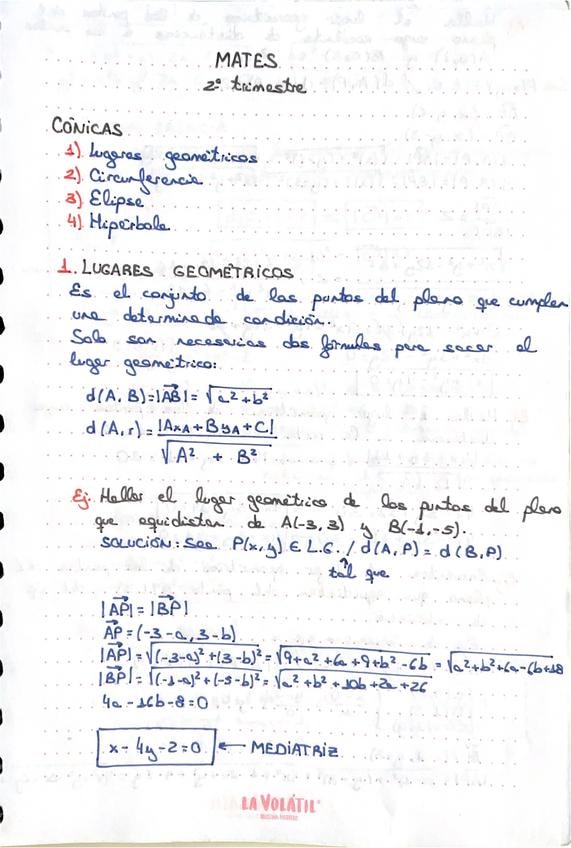 MATES
2º trimestre
CÓNICAS
1) Lugares geométricos
2) Circunferencia
3) Elipse
4) Hipérbola
1. LUGARES GEOMÉTRICOS
Es el conjunto de las puntos del plano que cumplen
una determinada condición.
Solo son necesarias dos fórmulas para sacar el
lugar geométrico:
d(A, B)=|AB|= √a²+b²
d(A,r)= |AxA+ByA+C|
√A² + B²
Ej. Hallar el lugar geométrico de los puntos del plano
que equidistan de A(-3,3) y B(-1,-5).
SOLUCIÓN: Sea P(x,y) ∈ L.G. / d(A,P) = d(B,P)
tal que
|AP|=|BP|
AP=(-3-a,3-b)
|AP|=√(-3-a)²+(3-b)²=√9+a²+6a+9+b²-6b=√a²+b²+6a-6b+18
|BP|=√(-1-a)²+(-5-b)²=√a²+b²+10b+2a+26
4a-16b-8=0
x-4y-2=0 ← MEDIATRIZ
LA VOLÁTIL